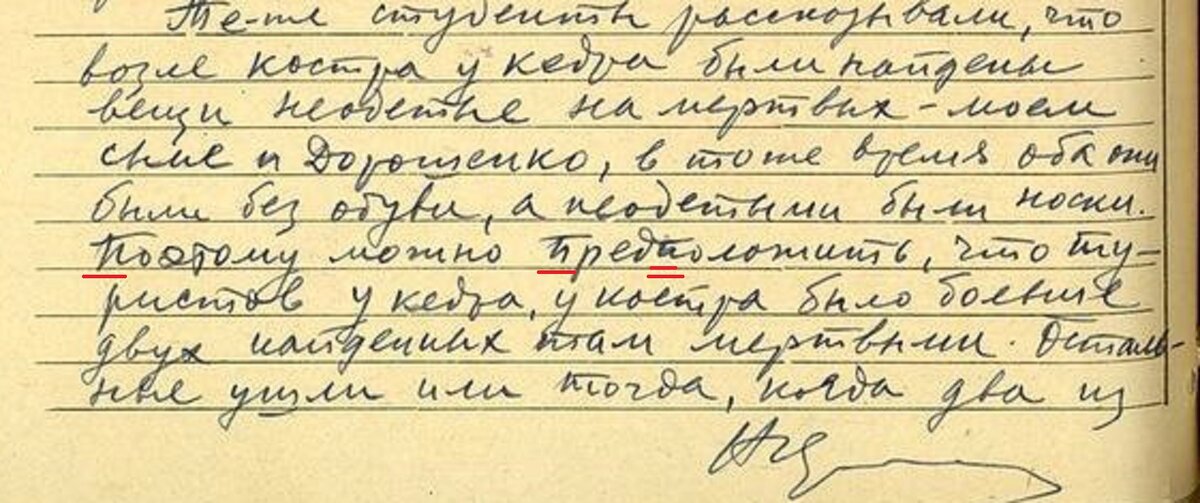 Те-же студенты рассказывали, что
возле костра у кедра были найдены
вещи неодетые на мертвых - моем
сыне и Дорошенко, в тоже время оба они
были без обуви, а неодетыми были носки.
Поэтому можно предположить, что ту-
ристов у кедра, у костра было больше
двух найденных там мертвыми. Осталь-
ные ушли или тогда, когда два из